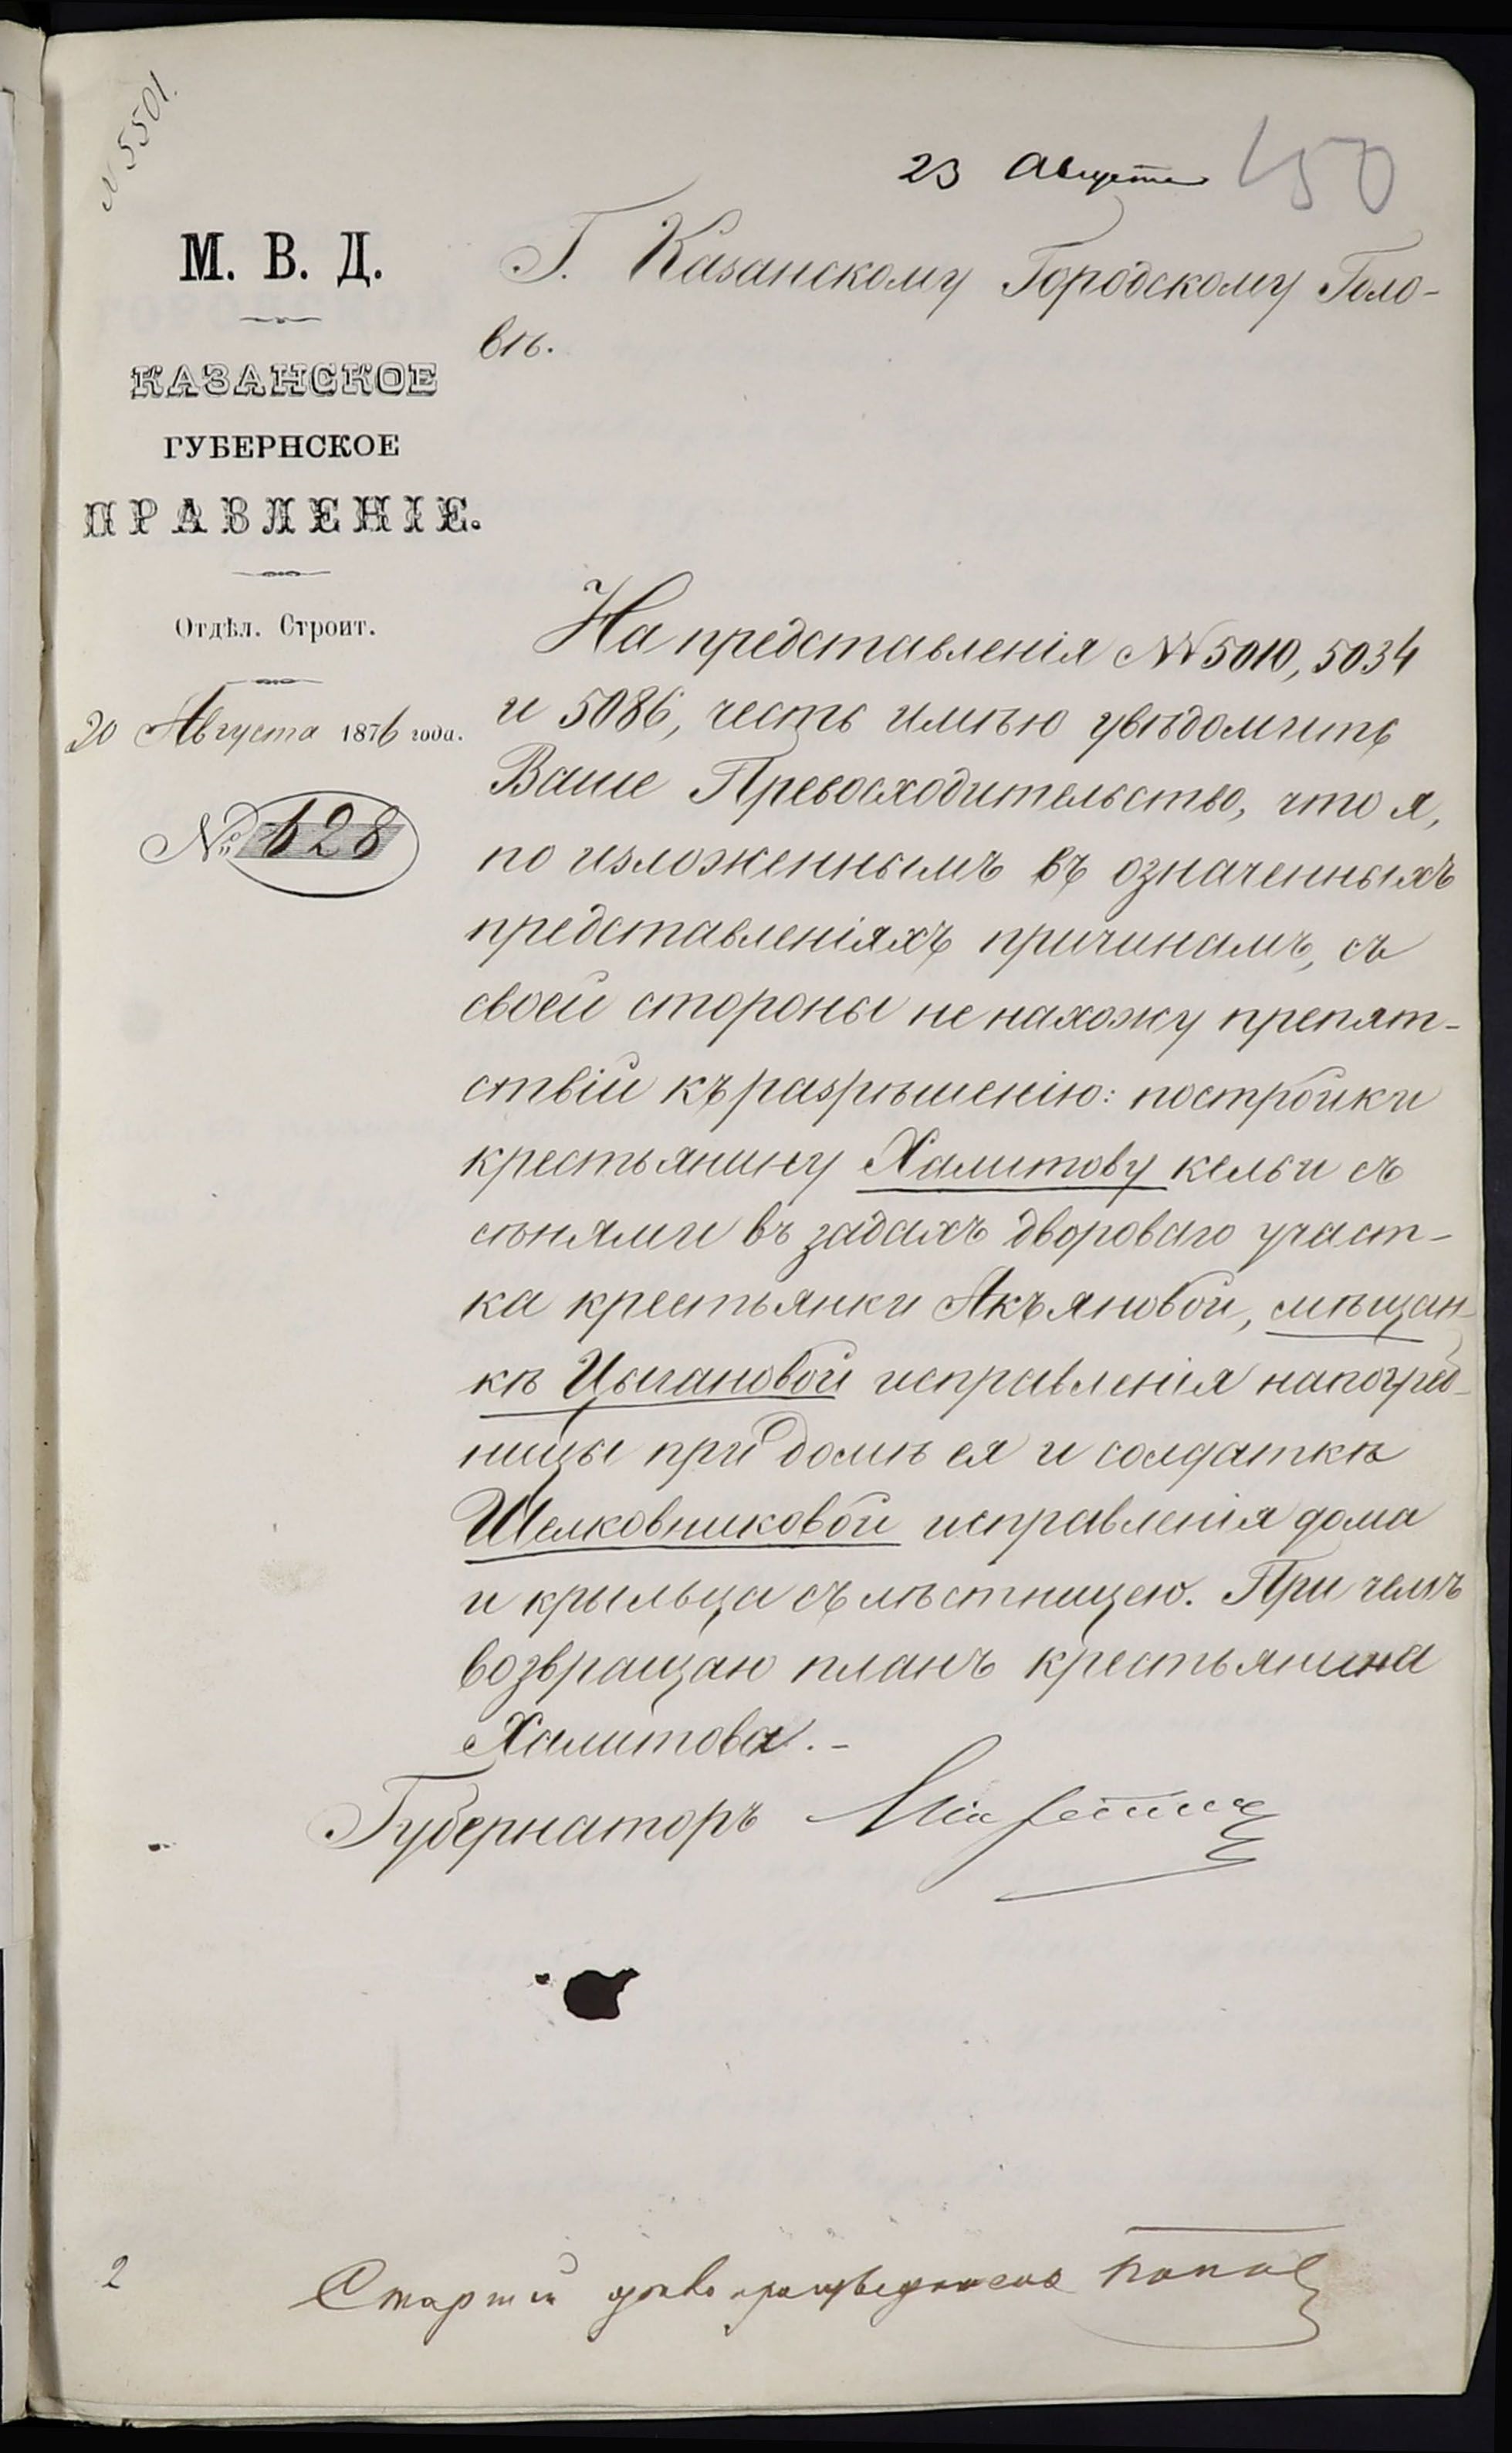 N 5501.
23 Августа
150
М. В. Д.
КАЗАНСКОЕ
ГУБЕРНСКОЕ
ПРАВЛЕНІЕ.
Отдѣл. Строит.
20 Августа 1876 года.
№ 628
Г. Казанскому Городскому Голо-
вѣ.
На представленія №№ 5010, 5034
и 5086, честь имѣю увѣдомить
Ваше Превосходительство, что я,
по изложеннымъ въ означенныхъ
представленіяхъ причинамъ, съ
своей стороны не нахожу препят-
ствій къ разрѣшенію: постройки
крестьянину Халитову кельи съ
сѣнями въ задахъ двороваго участ-
ка крестьянки Акъяновой, мѣщан-
кѣ Цыгановой исправленія напогреб-
ницы при домѣ ея и солдаткѣ
Шелковниковой исправленія дома
и крыльца съ лѣстницею. При чемъ
возвращаю планъ крестьянина
Халитова. -
Губернаторъ
2
Старшій дѣлопроизводитель Попов